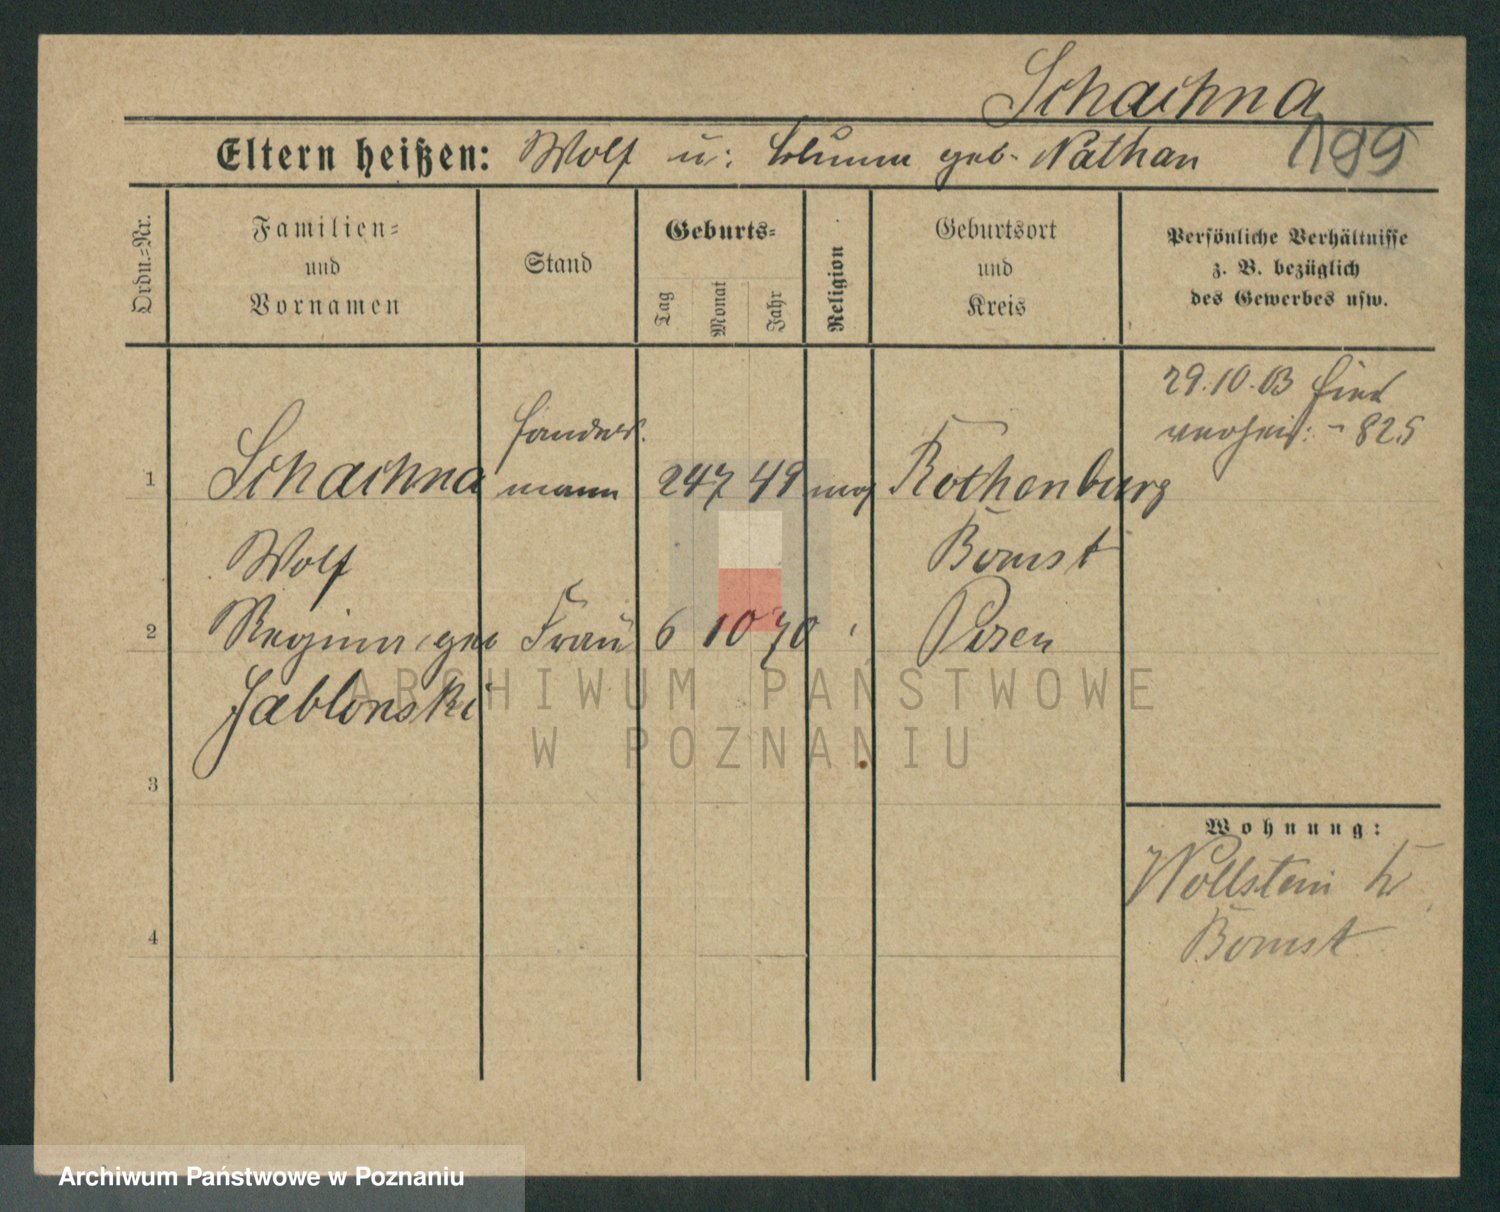 Schachna
199
Eltern heißen: Wolf u: Blume geb. Nathan
Ordn.-Nr.
Familien-
und
Vornamen
Stand
Geburts-
Tag
Monat
Jahr
Religion
Geburtsort
und
Kreis
Persönliche Verhältnisse
z. B. bezüglich
des Gewerbes usw.
29.10.03 hier
verheir: - 825
1 Schachna Handels- mann 24 7 49 mos Rothenburg
Wolf Bomst
2 Regina geb Frau 6 10 70 Posen
Jablonski
3
4
Wohnung:
Wollstein Kr
Bomst
ARCHIWUM PAŃSTWOWE
W POZNANIU
Archiwum Państwowe w Poznaniu